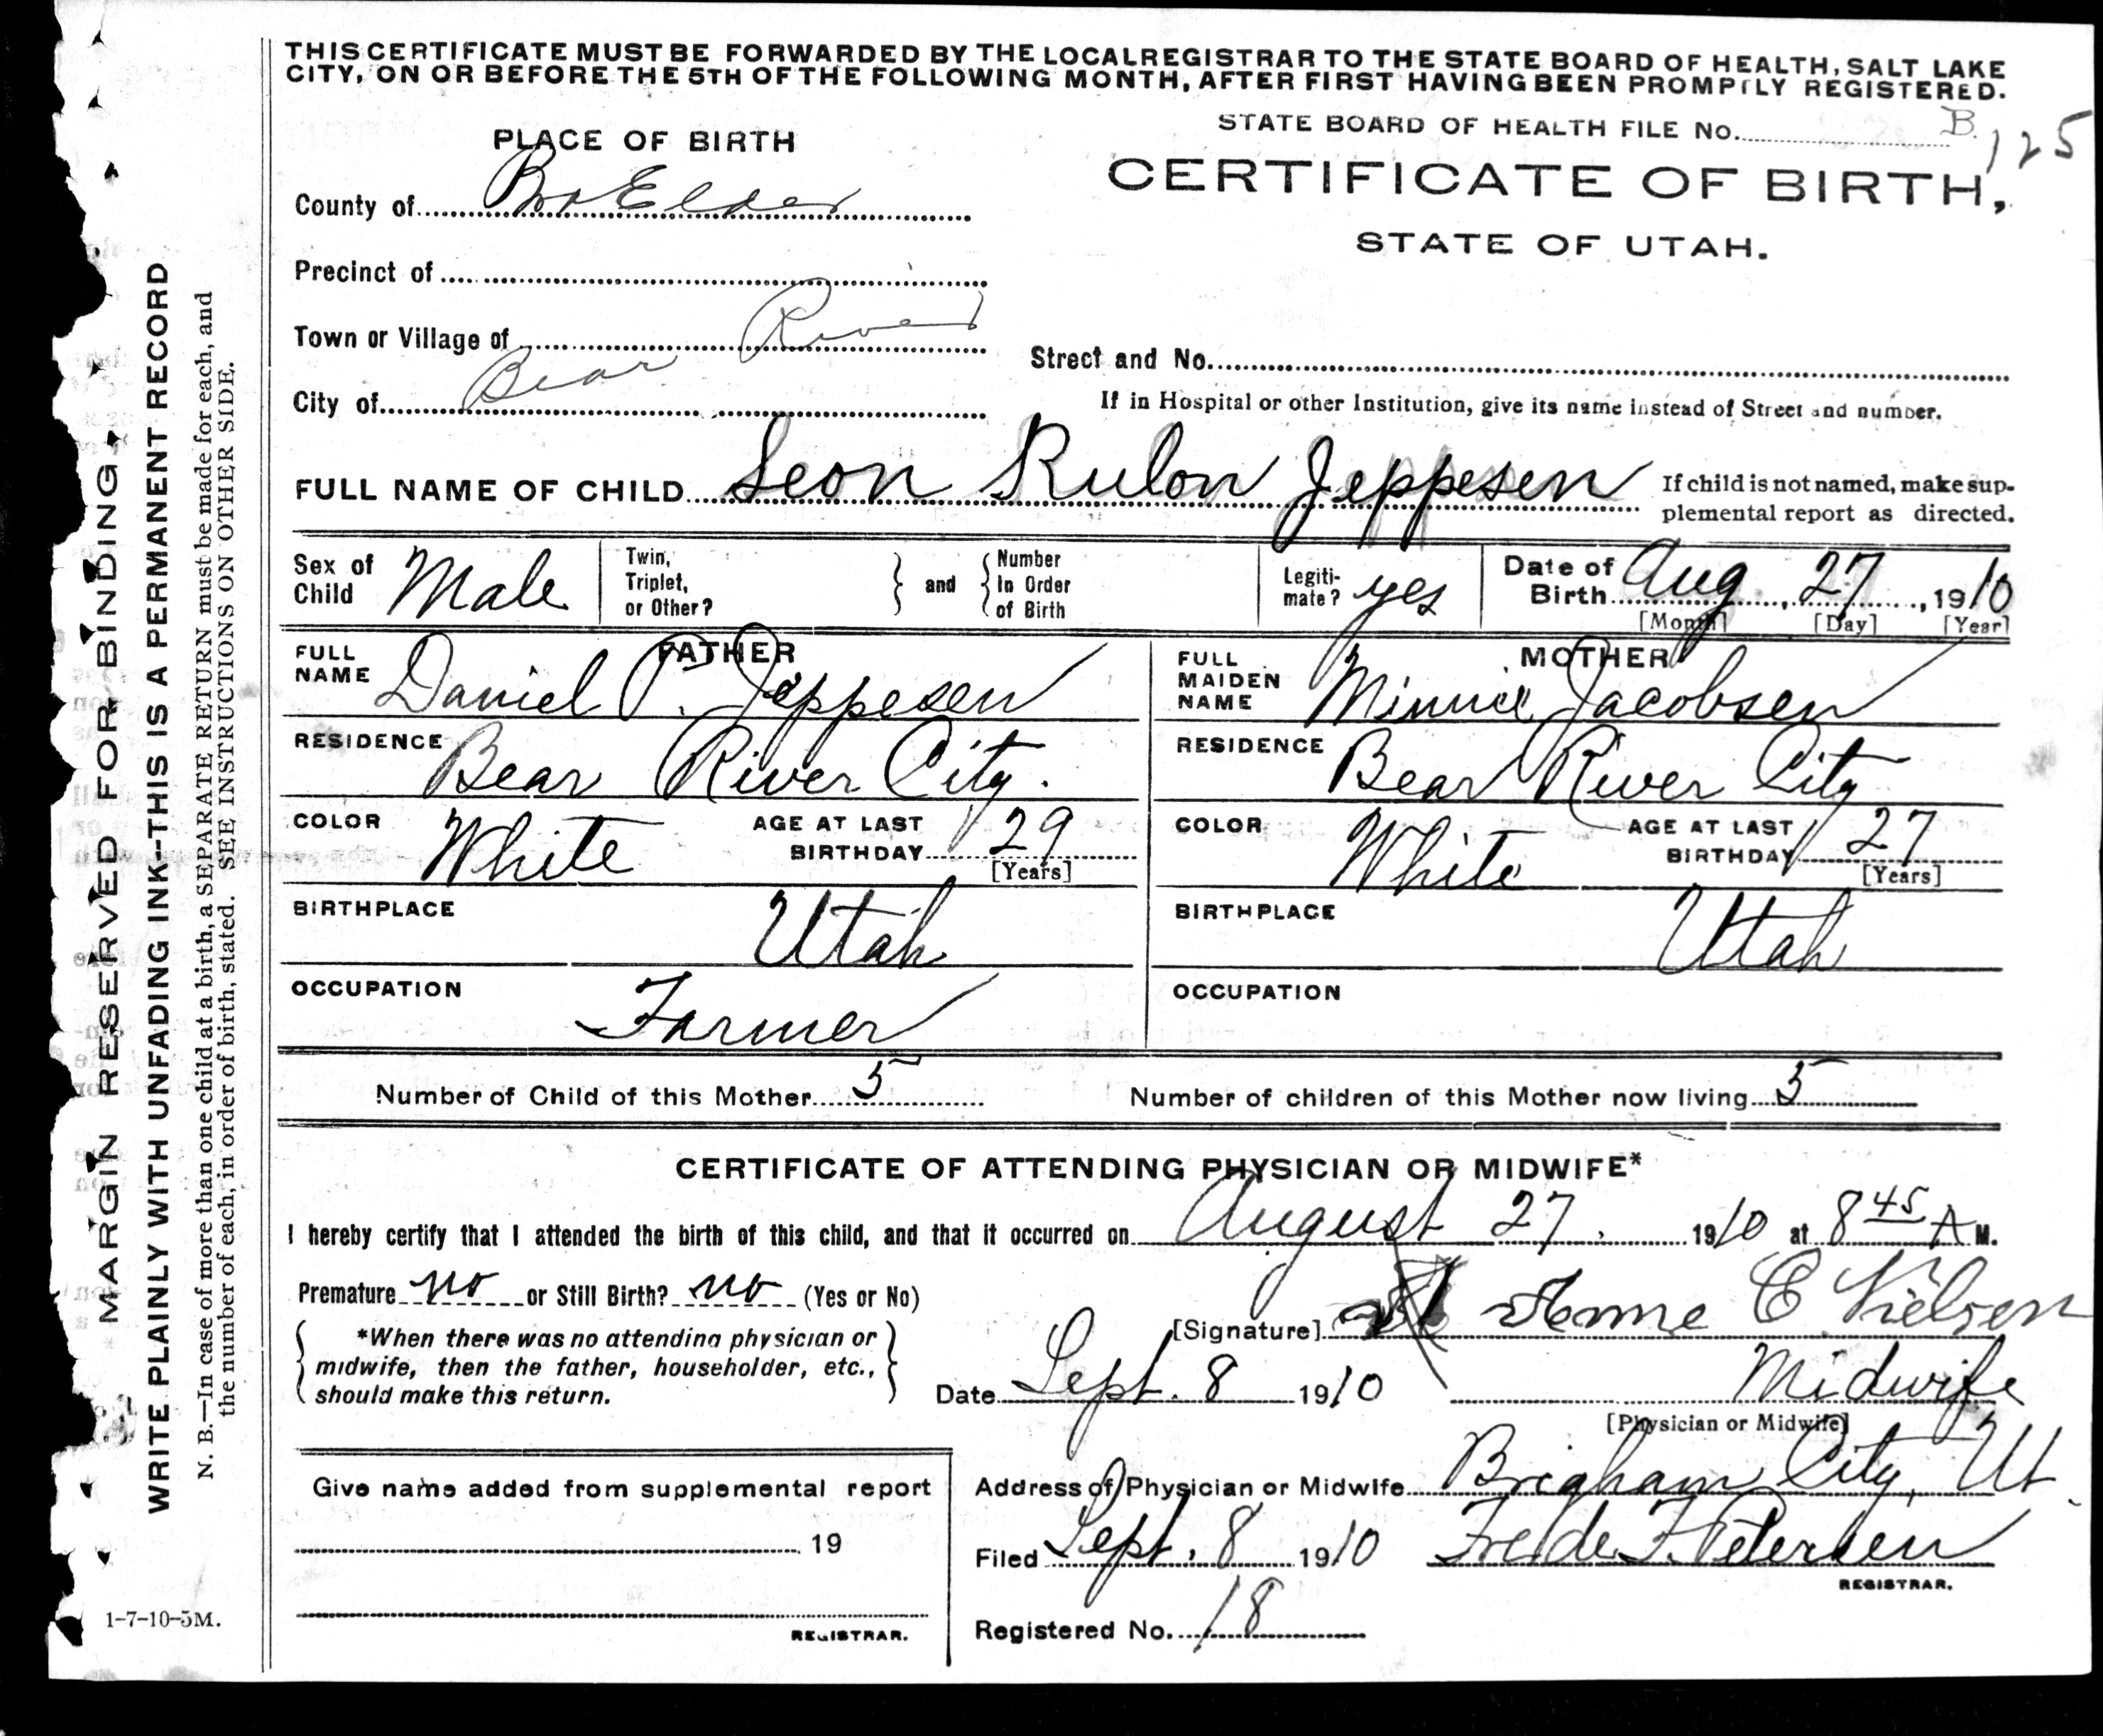 THIS CERTIFICATE MUST BE FORWARDED BY THE LOCAL REGISTRAR TO THE STATE BOARD OF HEALTH, SALT LAKE
CITY, ON OR BEFORE THE 5TH OF THE FOLLOWING MONTH, AFTER FIRST HAVING BEEN PROMPTLY REGISTERED.
STATE BOARD OF HEALTH FILE No. B. 125
PLACE OF BIRTH
CERTIFICATE OF BIRTH,
STATE OF UTAH.
County of Box Elder
Precinct of
Town or Village of River
City of Bear
Street and No.
If in Hospital or other Institution, give its name instead of Street and number.
FULL NAME OF CHILD Leon Rulon Jeppesen
If child is not named, make sup-
plemental report as directed.
Sex of Child Male
Twin, Triplet, or Other?
and
Number In Order of Birth
Legiti-mate? yes
Date of Birth Aug, 27, 1910
[Month] [Day] [Year]
FATHER
FULL NAME Daniel P. Jeppesen
RESIDENCE Bear River City.
COLOR White AGE AT LAST BIRTHDAY 29
[Years]
BIRTHPLACE Utah
OCCUPATION Farmer
MOTHER
FULL MAIDEN NAME Minnie Jacobsen
RESIDENCE Bear River City
COLOR White AGE AT LAST BIRTHDAY 27
[Years]
BIRTHPLACE Utah
OCCUPATION
Number of Child of this Mother 5 Number of children of this Mother now living 5
CERTIFICATE OF ATTENDING PHYSICIAN OR MIDWIFE*
I hereby certify that I attended the birth of this child, and that it occurred on August 27, 1910 at 8 45 A M.
Premature no or Still Birth? no (Yes or No)
*When there was no attending physician or
midwife, then the father, householder, etc.,
should make this return.
[Signature] C. Nielsen
Date Sept. 8 1910 Midwife
[Physician or Midwife]
Address of Physician or Midwife Brigham City, Ut.
Filed Sept. 8 1910 F. Petersen
REGISTRAR.
Registered No. 18
Give name added from supplemental report
19
REGISTRAR.
MARGIN RESERVED FOR BINDING.
WRITE PLAINLY WITH UNFADING INK--THIS IS A PERMANENT RECORD
N. B.—In case of more than one child at a birth, a SEPARATE RETURN must be made for each, and
the number of each, in order of birth, stated. SEE INSTRUCTIONS ON OTHER SIDE.
1-7-10-5M.